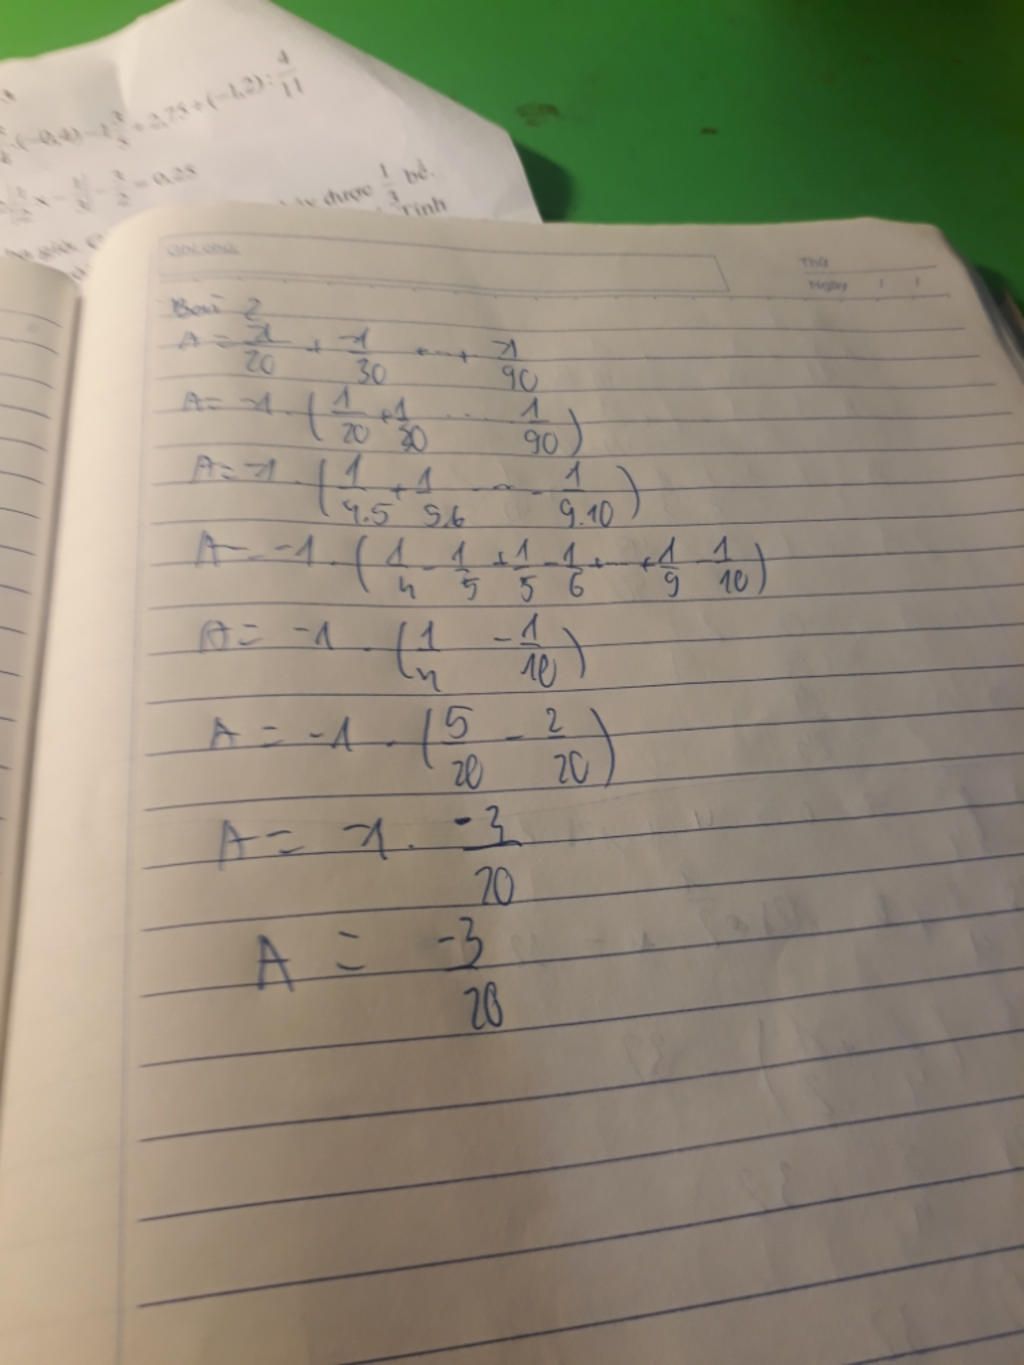 .(-0,4) - 1 3/5 + 2,75 + (-1,2) : 4/11
= 0,25
được 1/3 bể.
Thứ
Ngày / /
Bài 2
A = -1/20 + -1/30 + ... + -1/90
A = -1 . (1/20 + 1/30 ... 1/90)
A = -1 . (1/4.5 + 1/5.6 - ... - 1/9.10)
A = -1 . (1/4 - 1/5 + 1/5 - 1/6 + ... + 1/9 - 1/10)
A = -1 . (1/4 - 1/10)
A = -1 . (5/20 - 2/20)
A = -1 . -3/20
A = -3/20